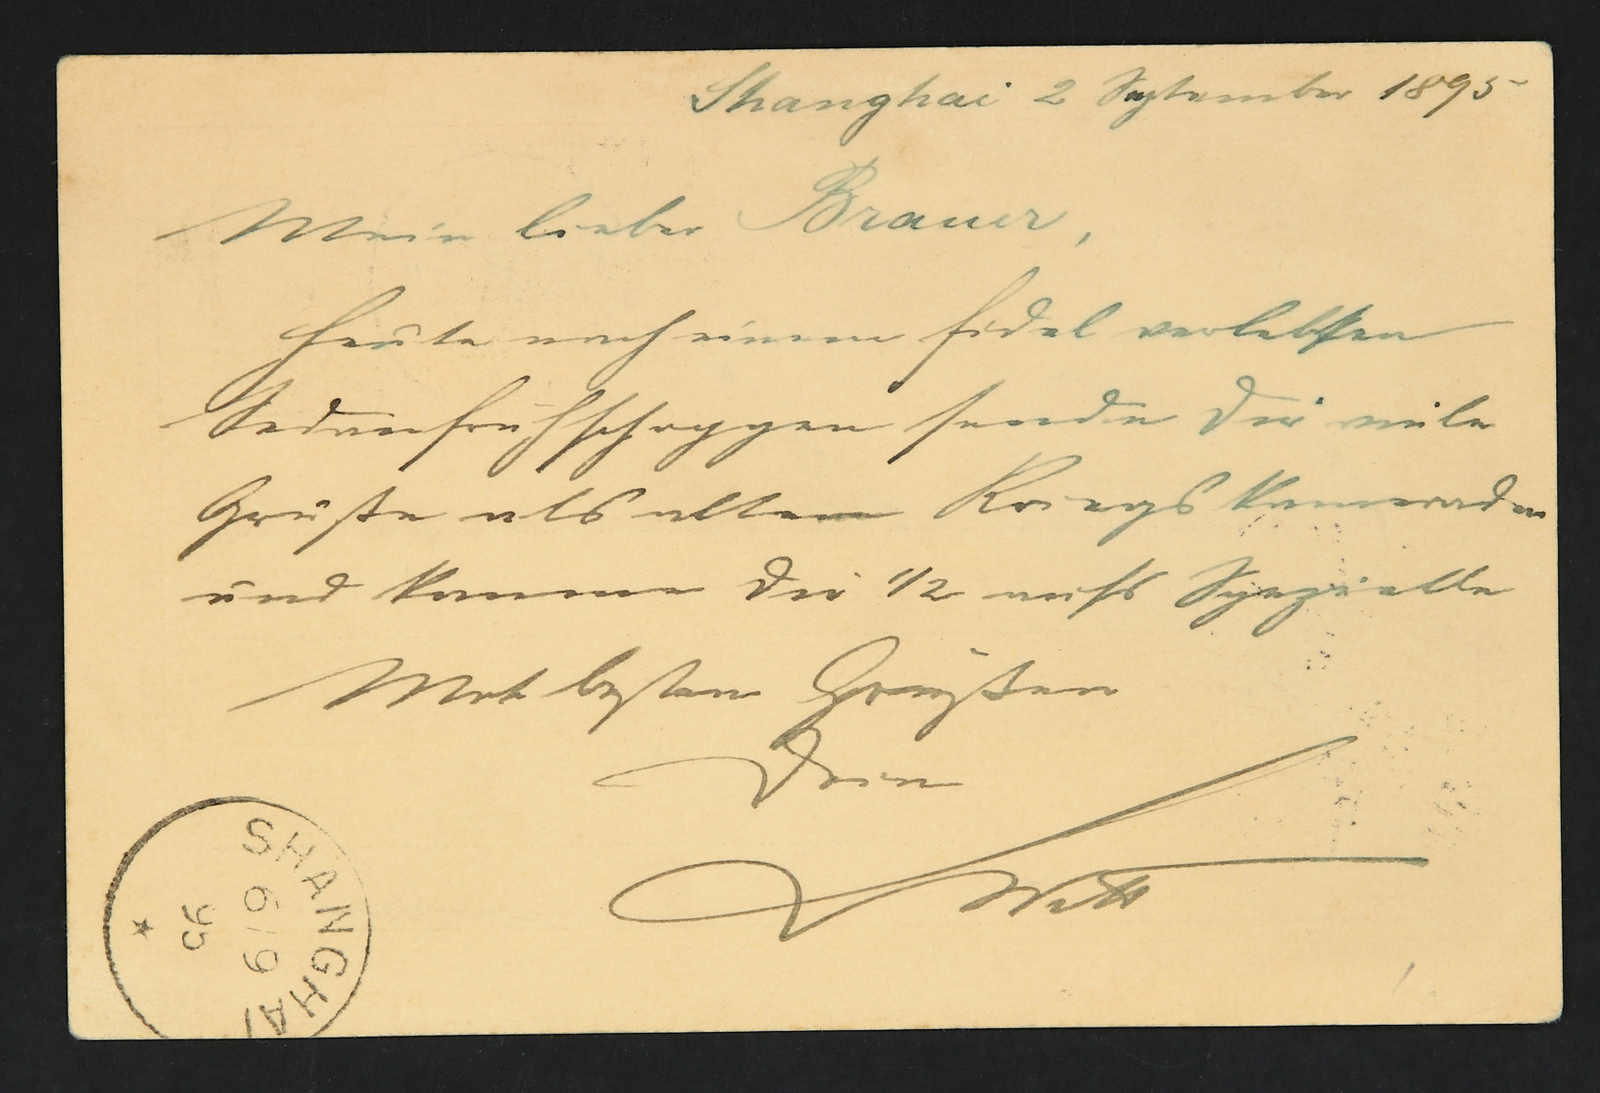 Shanghai 2 September 1895
Mein lieber Brauer,
Heute nach einem fidel verlebten
Sedanfrühschoppen sende Dir viele
Grüße als altem Kriegskameraden
und komme Dir 1/2 aufs Spezielle
Mit besten Grüßen
Dein
Witt
SHANGHAI
6/9
95